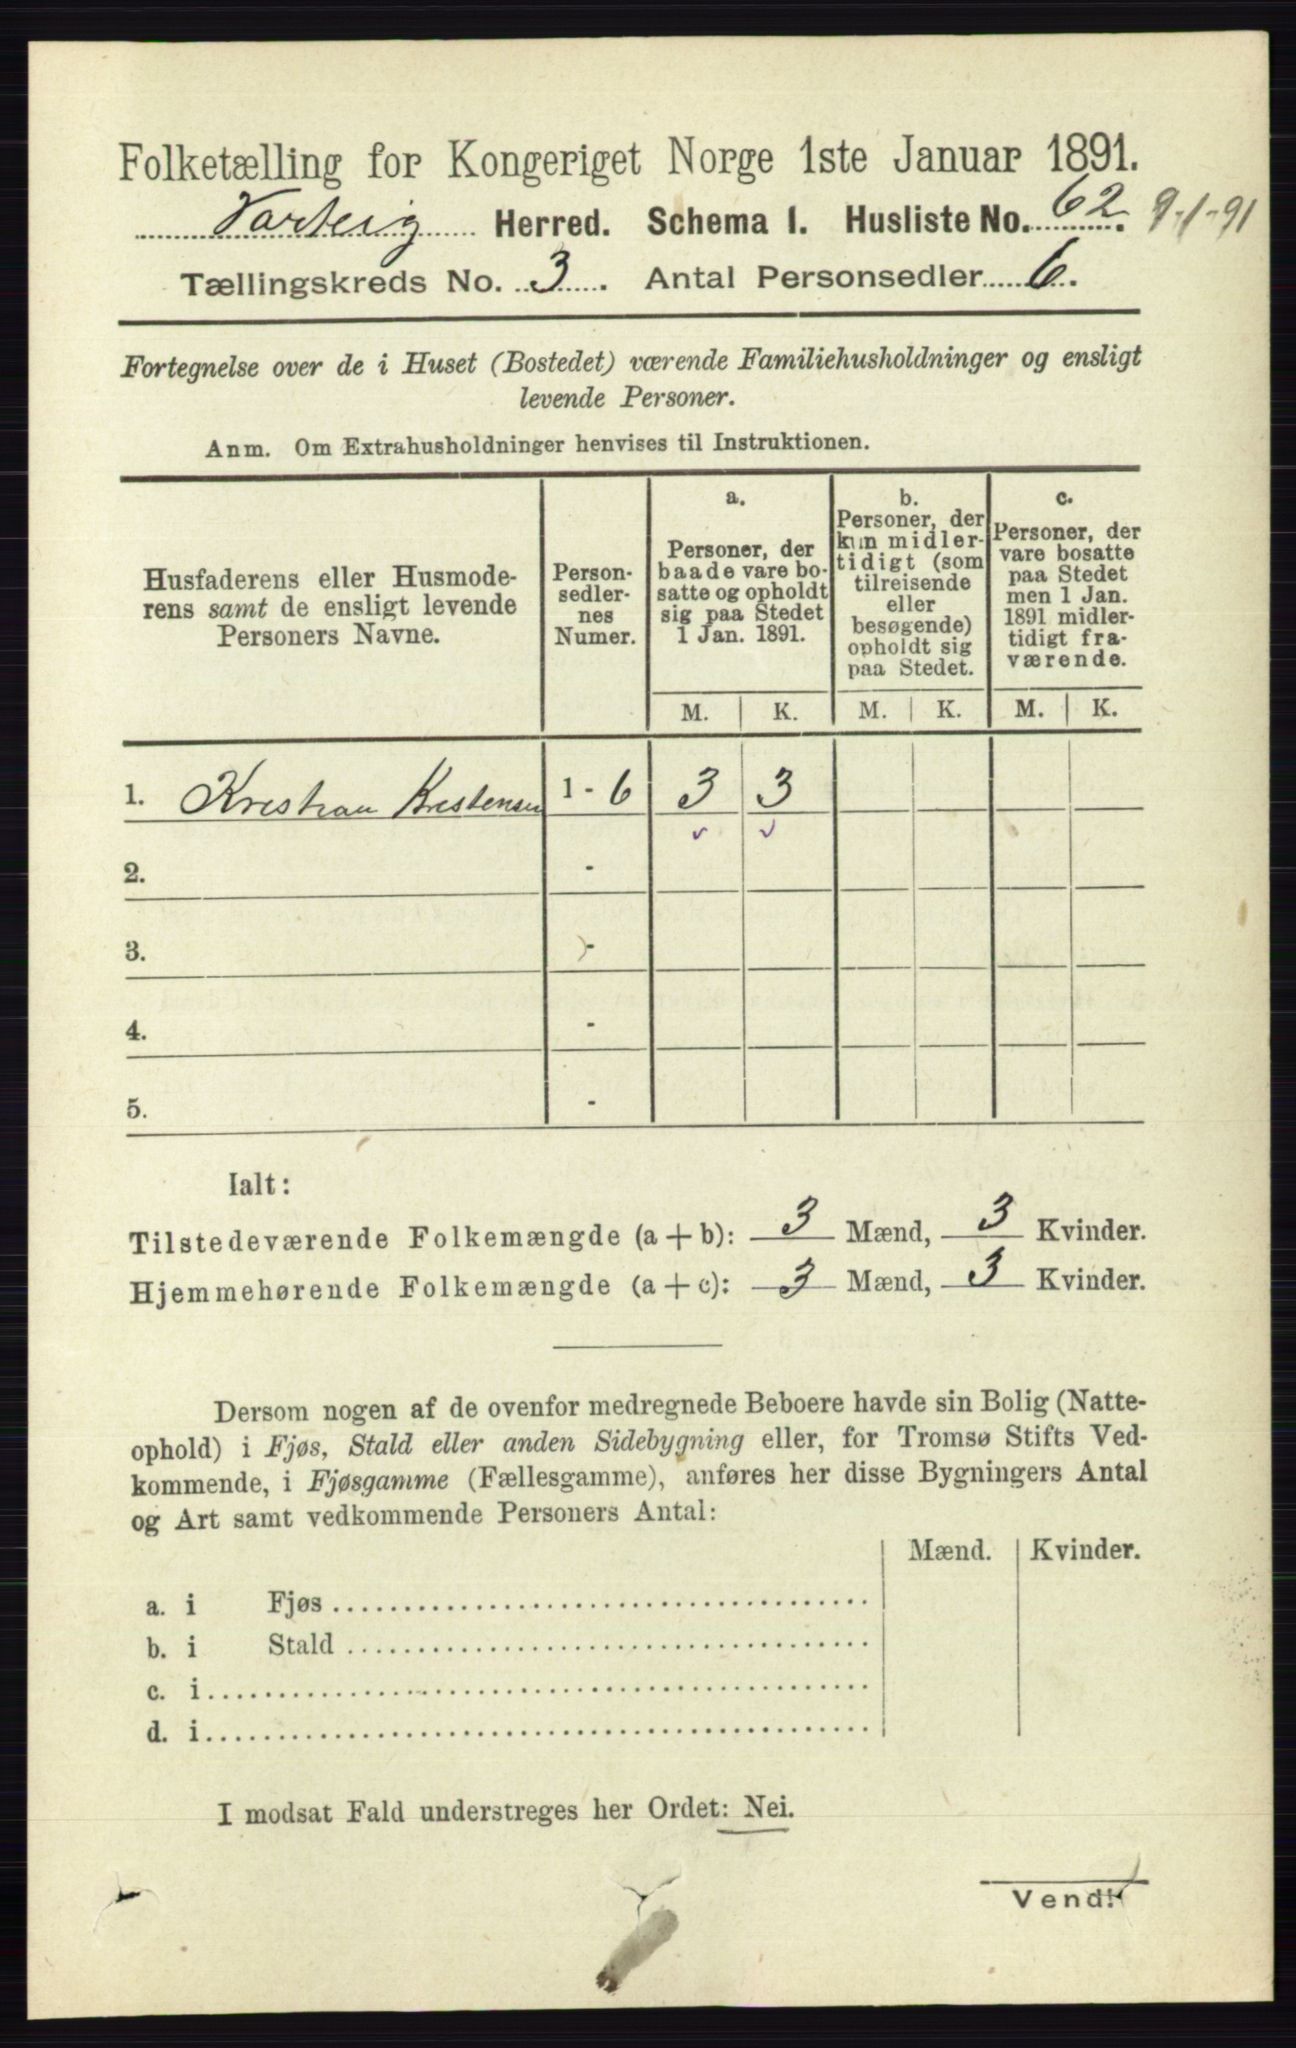 Folketælling for Kongeriget Norge 1ste Januar 1891.
Varteig Herred. Schema 1. Husliste No. 62. 9-1-91
Tællingskreds No. 3. Antal Personsedler 6.
Fortegnelse over de i Huset (Bostedet) værende Familiehusholdninger og ensligt
levende Personer.
Anm. Om Extrahusholdninger henvises til Instruktionen.
Husfaderens eller Husmode-
rens samt de ensligt levende
Personers Navne.
Person-
sedler-
nes
Numer.
a.
Personer, der
baade vare bo-
satte og opholdt
sig paa Stedet
1 Jan. 1891.
b.
Personer, der
kun midler-
tidigt (som
tilreisende
eller
besøgende)
opholdt sig
paa Stedet.
c.
Personer, der
vare bosatte
paa Stedet
men 1 Jan.
1891 midler-
tidigt fra-
værende.
M. K. M. K. M. K.
1. Kristian Kristensen 1 - 6 3 3
2. -
3. -
4. -
5. -
Ialt:
Tilstedeværende Folkemængde (a + b): 3 Mænd, 3 Kvinder.
Hjemmehørende Folkemængde (a + c): 3 Mænd, 3 Kvinder.
Dersom nogen af de ovenfor medregnede Beboere havde sin Bolig (Natte-
ophold) i Fjøs, Stald eller anden Sidebygning eller, for Tromsø Stifts Ved-
kommende, i Fjøsgamme (Fællesgamme), anføres her disse Bygningers Antal
og Art samt vedkommende Personers Antal:
Mænd. Kvinder.
a. i Fjøs
b. i Stald
c. i
d. i
I modsat Fald understreges her Ordet: Nei.
Vend!